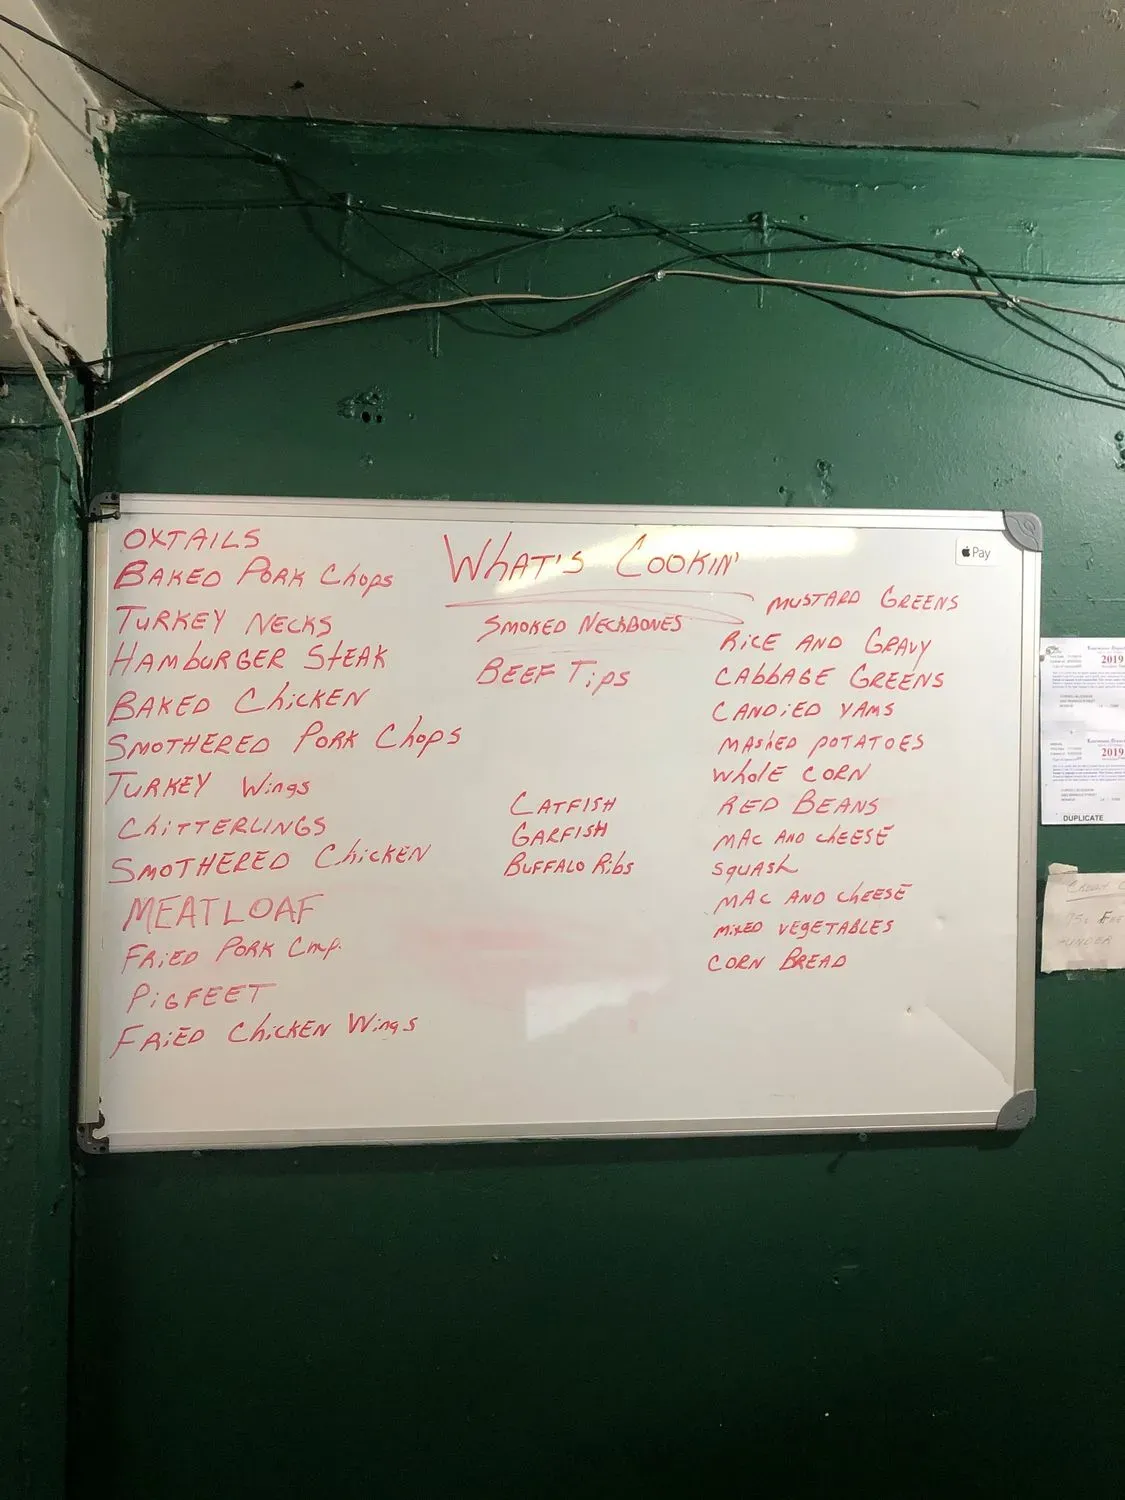 WHAT'S COOKIN'
OXTAILS
BAKED PORK Chops
TURKEY NECKS
HAMBURGER STEAK
BAKED CHICKEN
SMOTHERED PORK Chops
TURKEY Wings
ChiTTERLINGS
SMOTHERED ChicKEN
MEATLOAF
FRiED PORK
PiGFEET
FRiED ChicKEN Wings
SMOKED NECKBONES
BEEF Tips
CATFISH
GARFISH
BUFFALO Ribs
MUSTARD GREENS
RiCE AND GRAVY
CABBAGE GREENS
CANDiED YAMS
MASHED POTATOES
WholE CORN
RED BEANS
MAC AND ChEESE
SQUASH
MAC AND ChEESE
MiXED VEGETABLES
CORN BREAD
Pay
2019
2019
DUPLICATE